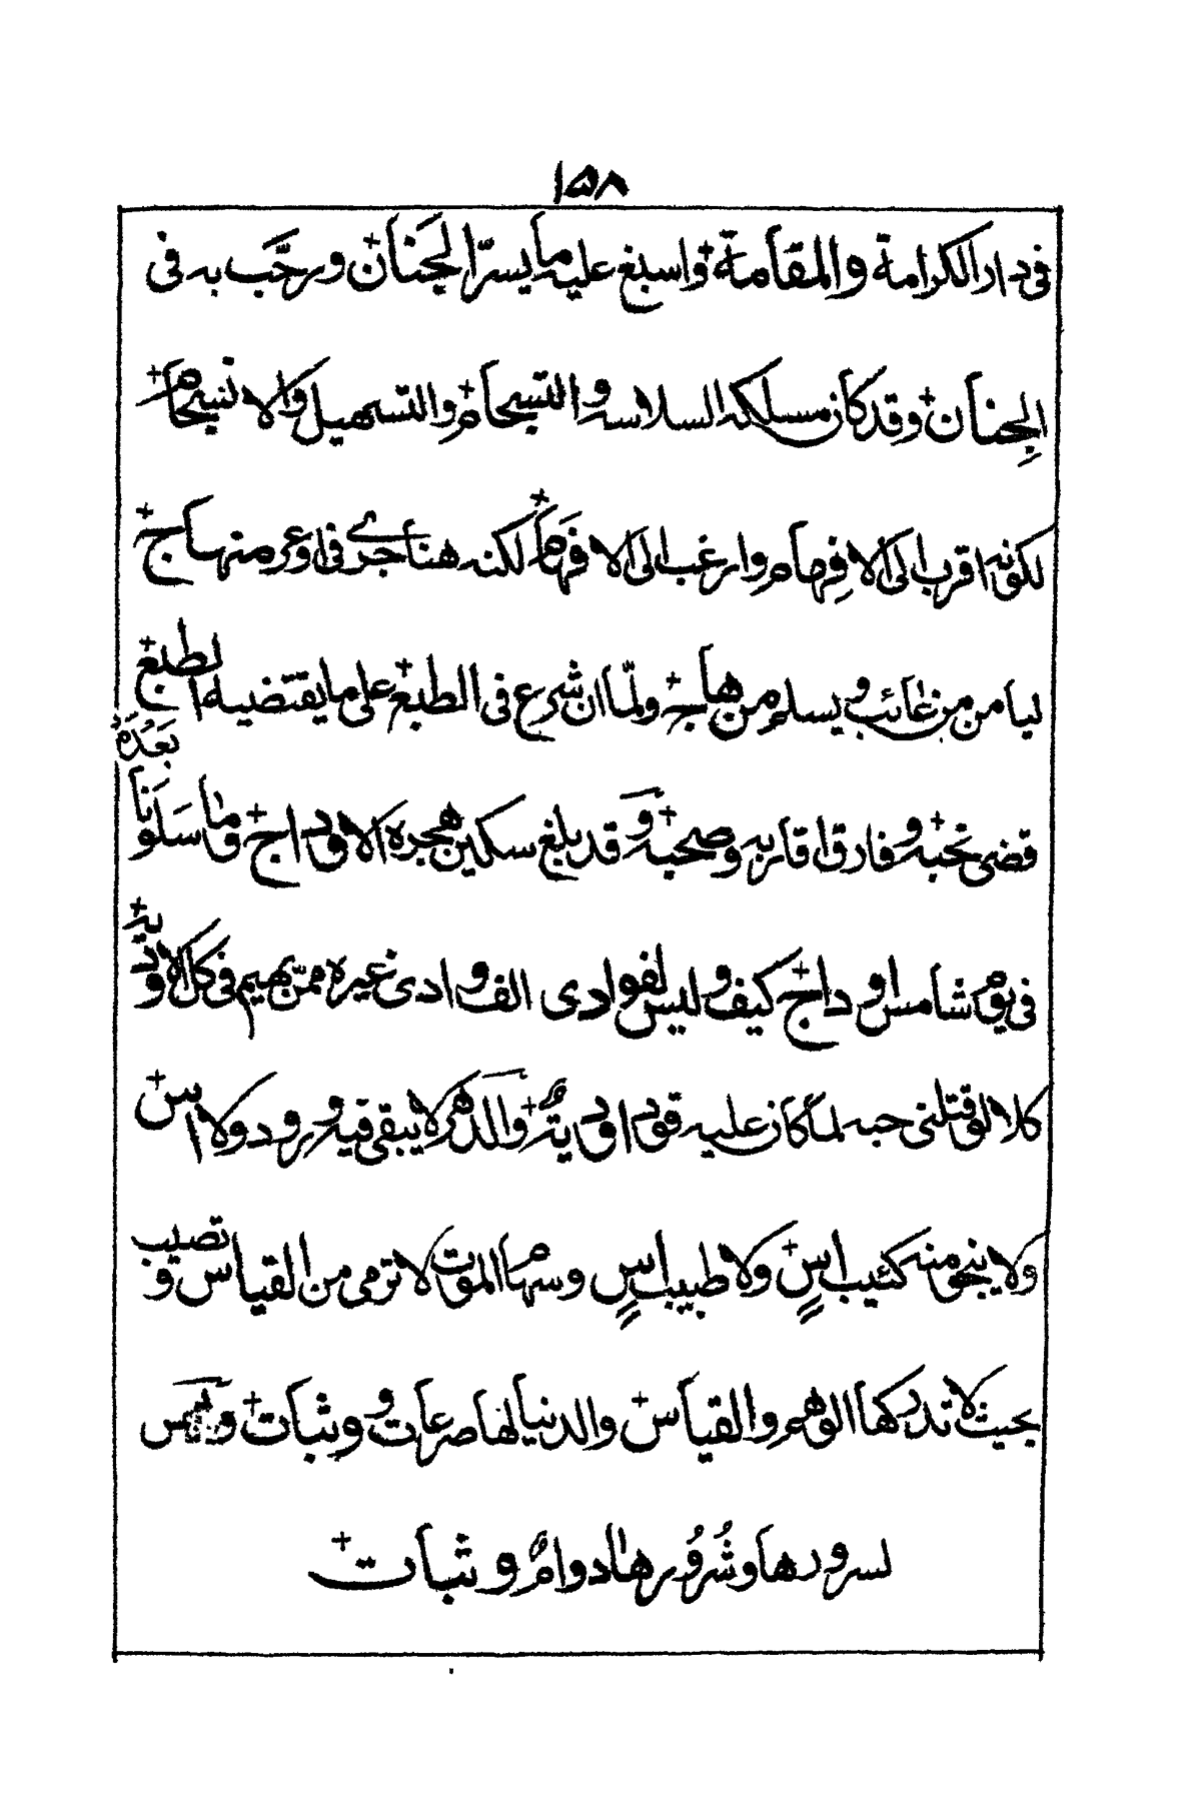 ١٥٨
فى دار الكرامة والمقامة + واسبغ عليه ما يسرّ الجَنان + ورحَّب به فى
الجِنان + وقد كان مسلكه السلاسه و التسجام + والتسهيل والانسجام +
لكونه اقرب الى الافهام وارغب الى الافهام + لكنه هنا جرى فى اوعر منهاج +
ليامن من غائب ويسلم من هاج + ولمّا ان شرع فى الطبع + على ما يقتضيه الطبع +
قضى نحبه + وفارق اقاربه وصحبه + وقد بلغ سكين هجره الاوداج + وما سَلَونا بَعدَهُ
فى يوم شامس او داج + كيف وليس لفوادى الف وادى غيره ممّن بهيم فى كل الاودية +
كلا لو قتلنى حبه لما كان عليه قود او دية + والدهر لا يبقى فيه مرود ولا اس +
ولا ينجو منه كئيب اسٍ + ولا طبيب اسٍ وسهام الموت لا ترمى من القياس و تصيب
بحيث لا تدركها الوهم والقياس + والدنيا لها صرعات و وثبات + وليس
لسرورها وشُرُورها دوامٌ و ثبات +